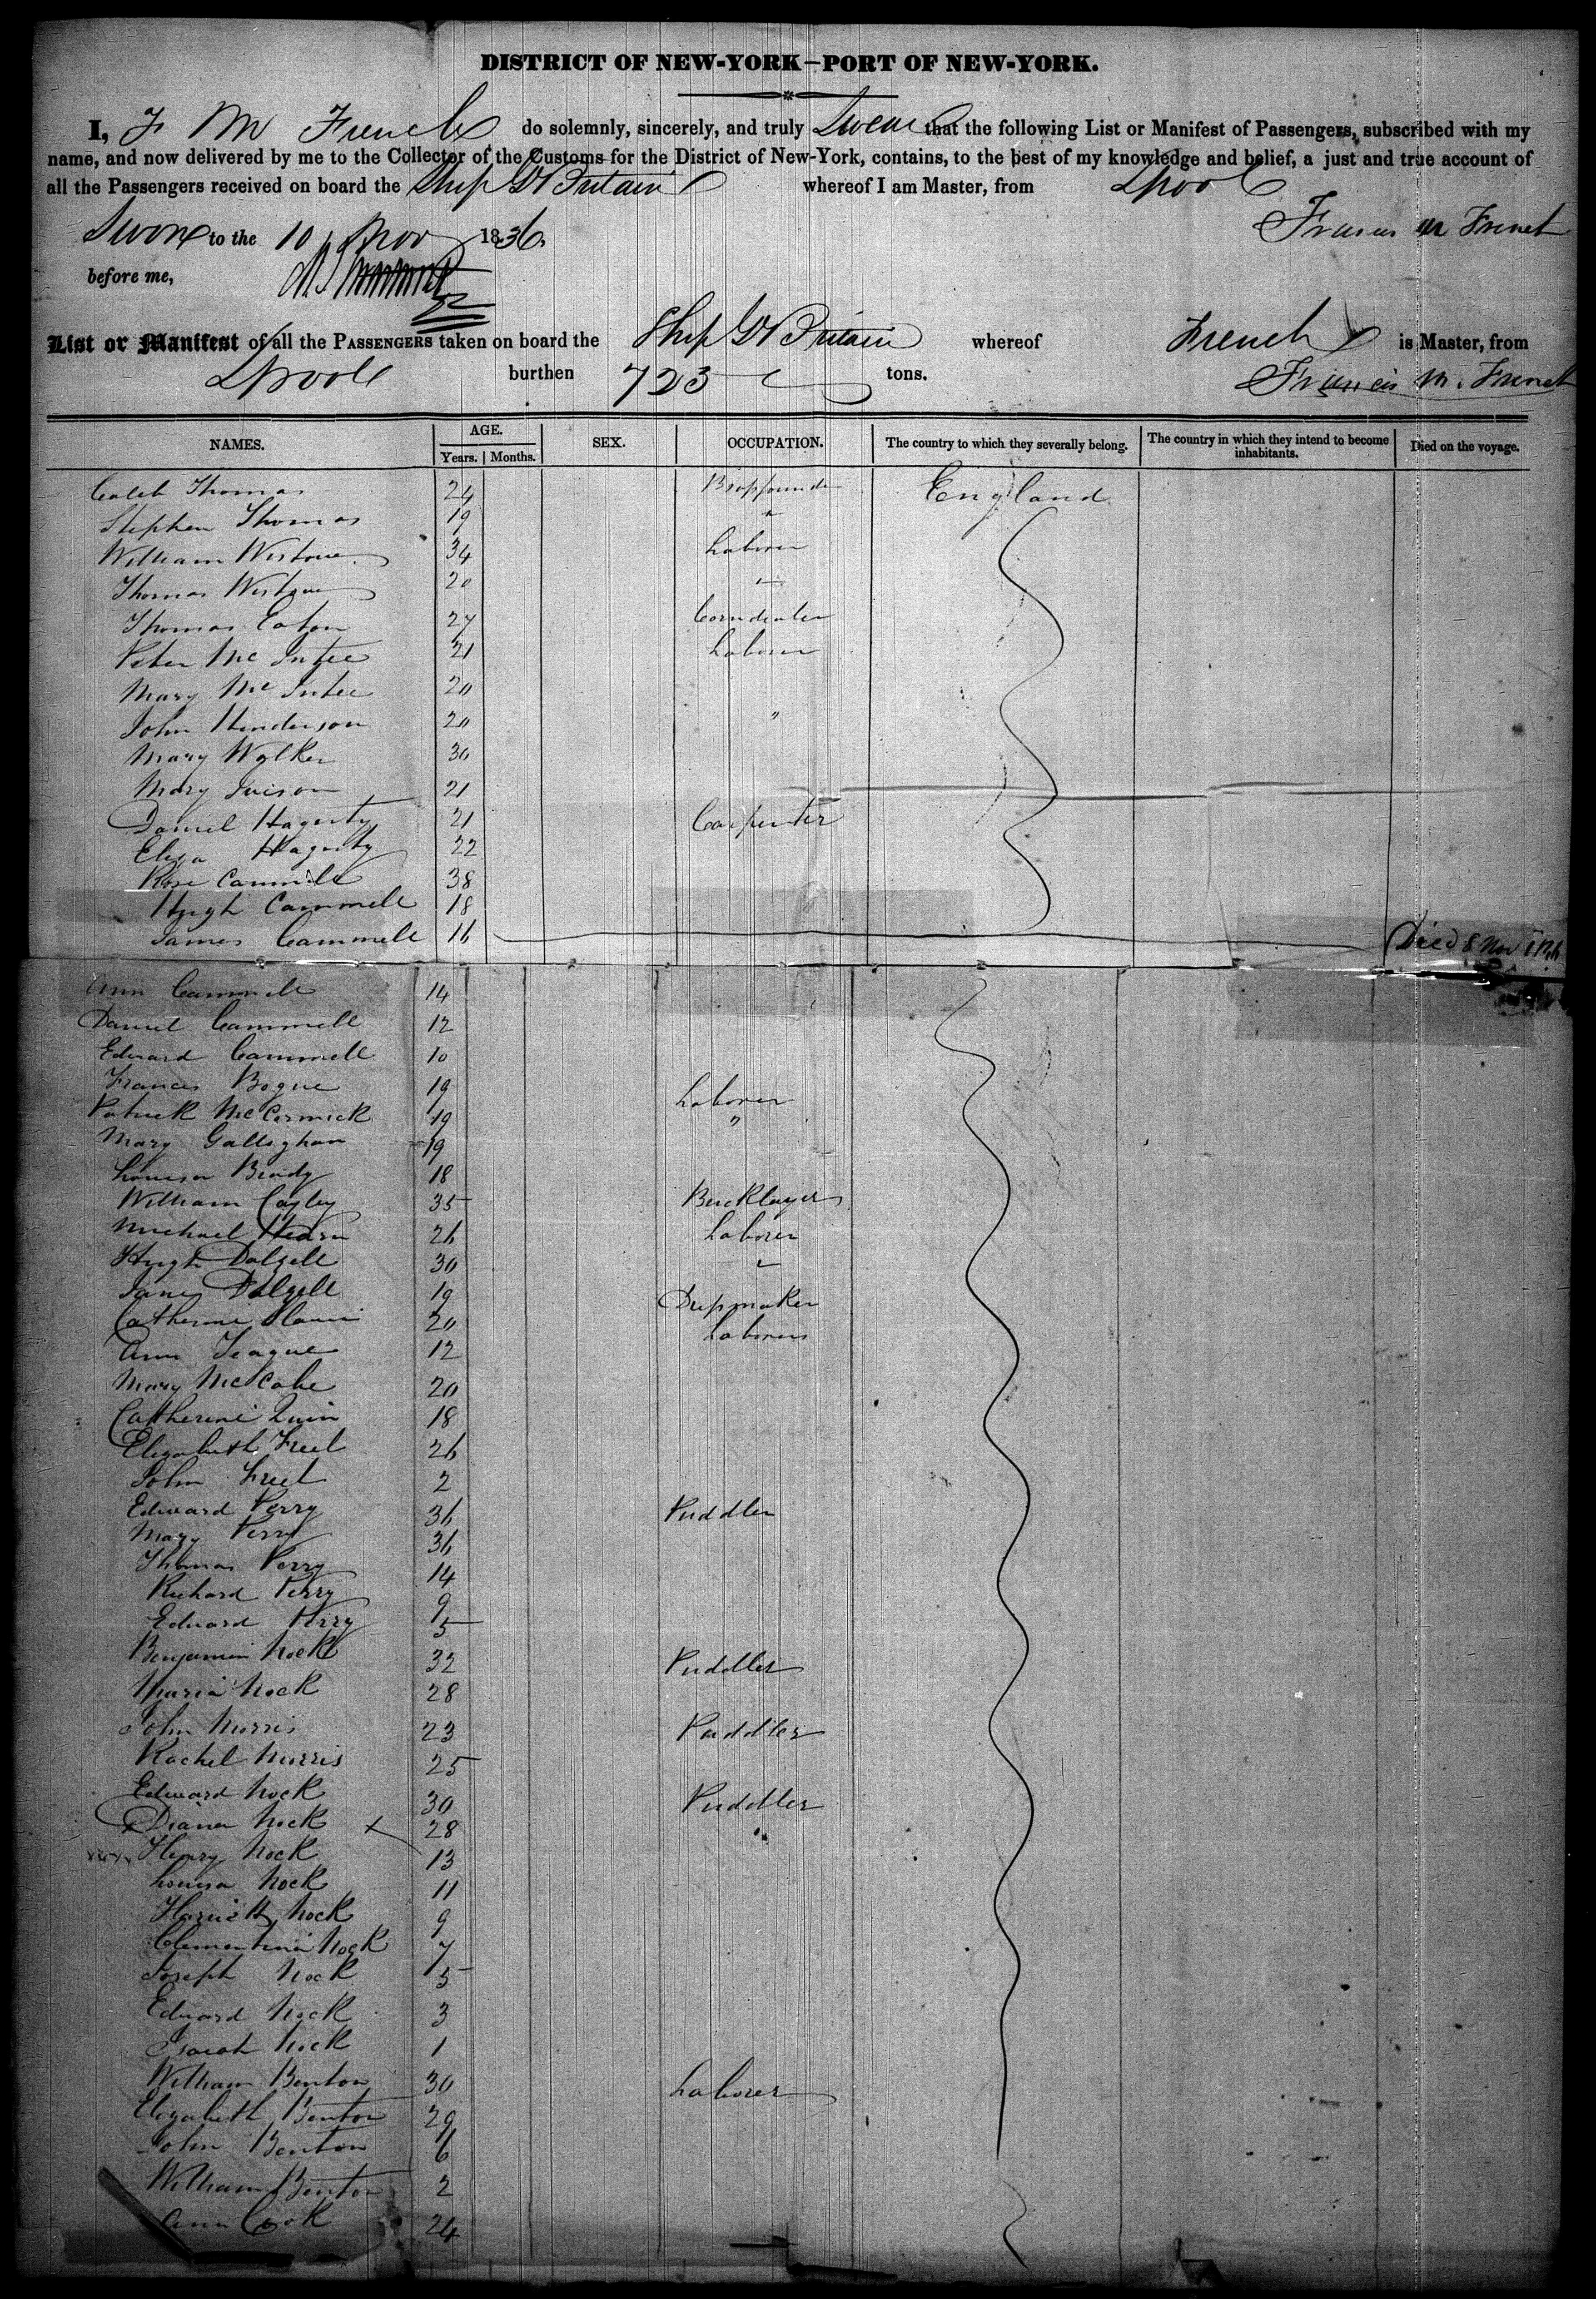 DISTRICT OF NEW-YORK—PORT OF NEW-YORK.
I, F M French do solemnly, sincerely, and truly Swear that the following List or Manifest of Passengers, subscribed with my
name, and now delivered by me to the Collector of the Customs for the District of New-York, contains, to the best of my knowledge and belief, a just and true account of
all the Passengers received on board the Ship Gt Britain whereof I am Master, from Lpool
Sworn to the 10 Nov 1836. Francis M French
before me,
List or Manifest of all the PASSENGERS taken on board the Ship Gt Britain whereof French is Master, from
Lpool burthen 723 tons. Francis M. French
NAMES. AGE. Years. Months. SEX. OCCUPATION. The country to which they severally belong. The country in which they intend to become inhabitants. Died on the voyage.
Caleb Thomas 24 England
Stephen Thomas 19 "
William 34 Laborer
Thomas 20 "
Thomas Eaton 27 Corndealer
Peter McIntee 21 Laborer
Mary McIntee 20
John Henderson 20 "
Mary Walker 30
Mary 21
Daniel Hagerty 21 Carpenter
Eliza Hagerty 22
Rose Cammell 38
Hugh Cammell 18
James Cammell 16 Died 8 Nov
Ann Cammell 14
Daniel Cammell 12
Edward Cammell 10
Frances Bogue 19 Laborer
Patrick McCormick 19 "
Mary Gallaghan 19
Louisa Brady 18
William Cayley 35 Bricklayer
Michael Hearn 26 Laborer
Hugh Dalzell 30 "
Jane Dalzell 19 Dressmaker
Catherine 20 Laborer
Ann Teague 12
Mary McCabe 20
Catherine Quin 18
Elizabeth Freel 26
John Freel 2
Edward Perry 36 Puddler
Mary Perry 36
Thomas Perry 14
Richard Perry 9
Edward Perry 5
Benjamin Nock 32 Puddler
Maria Nock 28
John Morris 23 Puddler
Rachel Morris 25
Edward Nock 30 Puddler
Diana Nock x 28 "
Henry Nock 13
Louisa Nock 11
Harriett Nock 9
Clementina Nock 7
Joseph Nock 5
Edward Nock 3
Isaiah Nock 1
William Benton 30 Laborer
Elizabeth Benton 29
John Benton 6
William Benton 2
Ann Cook 24